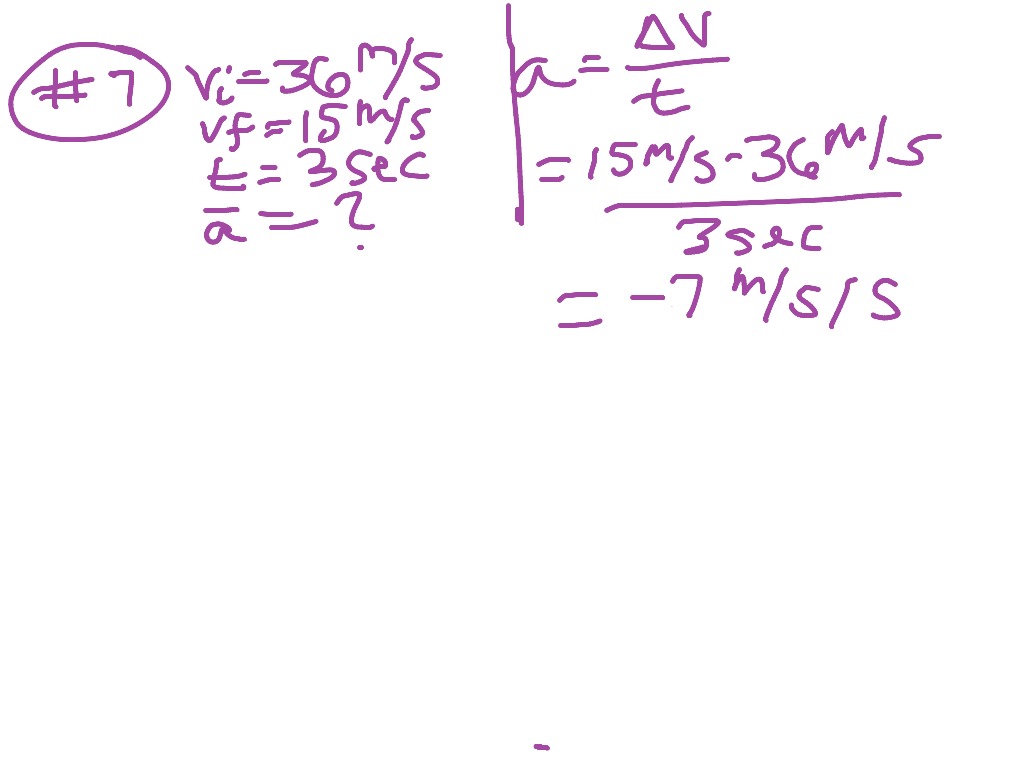 #7
vi = 36 m/s
vf = 15 m/s
t = 3 sec
a̅ = ?
a = ΔV
t
= 15 m/s - 36 m/s
3 sec
= -7 m/s/s